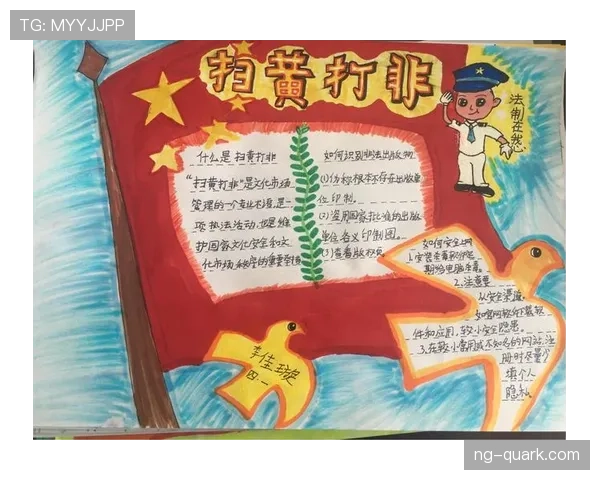 TG: MYYJJPP
扫黄打非
法制在我心
什么是 扫黄打非
“扫黄打非”是文化市场
管理的一个专业术语,是一
项执法活动,也是维
护国家文化安全和文
化市场秩序的重要举措
如何识别非法出版物
(1)伪称根本不存在出版单
位印制。
(2)盗用国家批准的出版
单位名义印制图。
(3)查看版权页
如何安全上网
1.安装杀毒软件定
期给电脑杀毒。
2.注意要
从安全渠道
如官网软件下载软
件和应用,较小安全隐患。
3.在较小常用或不知名的网站,注
册时尽量少
填个人
隐私。
李佳璇
四一
ng-quark.com